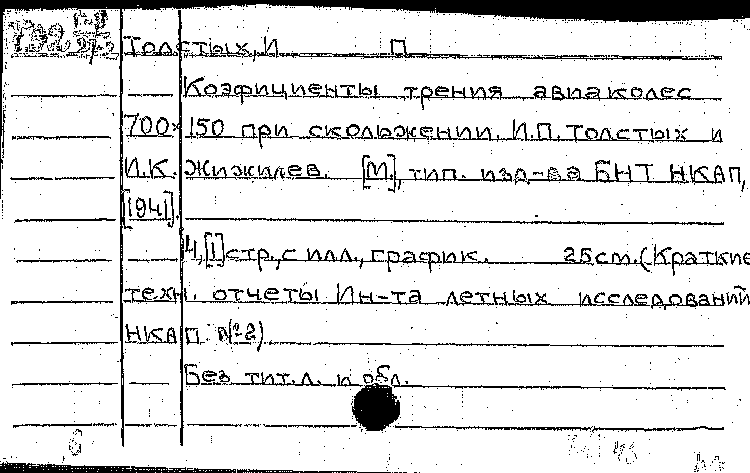 Толстых, И П
Коэфициенты трения авиаколес
700×150 при скольжении. И.П. Толстых и
И.К. Жижилев. [М.], тип. изд-ва БНТ НКАП,
[194].
4,[1]стр., с илл., график. 25см.(Краткие
техн. отчеты Ин-та летных исследований
НКАП №2)
Без тит.л. и обл.